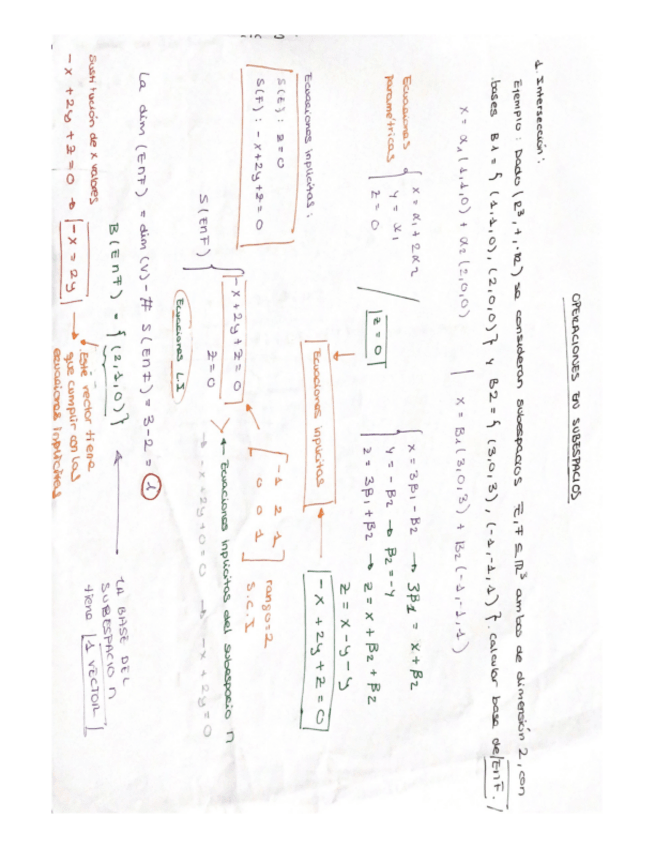 OPERACIONES EN SUBESPACIOS
1. Intersección:
Ejemplo: Dado (R³, +, ·R) se consideran subespacios E, F ≤ R³ ambos de dimensión 2, con
bases B1 = {(1,1,0), (2,0,0)} y B2 = {(3,0,3), (-1,-1,1)}. Calcular base de E∩F.
x = α1(1,1,0) + α2(2,0,0) | x = B1(3,0,3) + B2(-1,-1,1)
Ecuaciones
paramétricas
x = α1 + 2α2
y = α1
z = 0
z = 0
x = 3β1 - β2 → 3β1 = x + β2
y = -β2 → β2 = -y
z = 3β1 + β2 → z = x + β2 + β2
z = x - y - y
-x + 2y + z = 0
Ecuaciones implícitas
Ecuaciones implícitas:
S(E): z = 0
S(F): -x + 2y + z = 0
S(E∩F)
-x + 2y + z = 0
z = 0
Ecuaciones L.I
-1 2 1
0 0 1
rango = 2
S.C.I
← Ecuaciones implícitas del subespacio ∩
→ -x + 2y + 0 = 0 → -x + 2y = 0
La dim (E∩F) = dim (V) - # S(E∩F) = 3 - 2 = 1
B(E∩F) = {(2,1,0)}
LA BASE DEL
SUBESPACIO ∩
tiene 1 VECTOR
Sustitución de x valores
-x + 2y + z = 0 → -x = 2y
Este vector tiene
que cumplir con las
ecuaciones implícitas